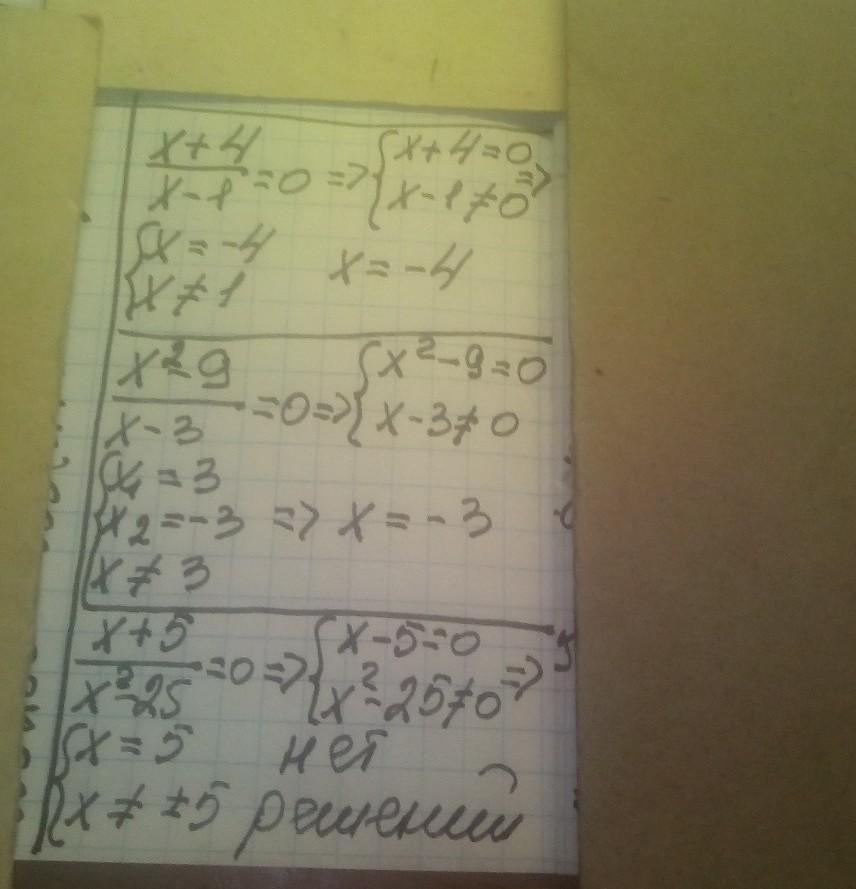 x+4/x-1=0 => {x+4=0 x-1≠0 =>
{x=-4 x≠1 x=-4
x²-9/x-3=0 => {x²-9=0 x-3≠0
{x₁=3
x₂=-3 => x=-3
x≠3
x+5/x²-25=0 => {x-5=0 x²-25≠0 =>
{x=5 нет
x≠±5 решений